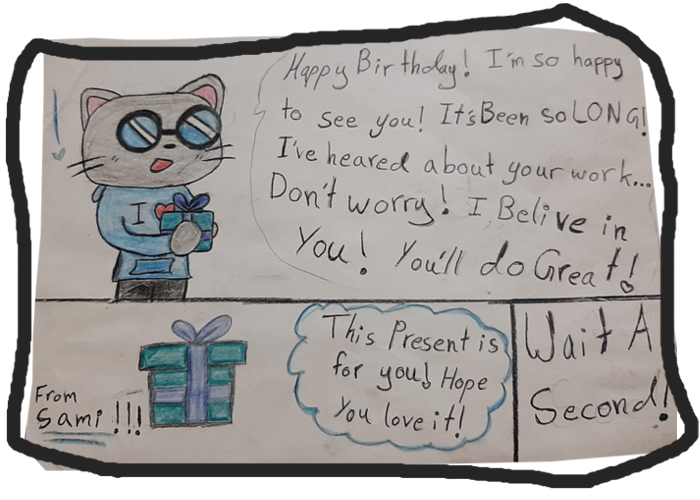 Happy Birthday! I'm so happy
to see you! It's Been so LONG!
I've heared about your work...
Don't worry! I Belive in
You! You'll do Great!
I
This Present is
for you! Hope
You love it!
From
Sami!!!
Wait A
Second!